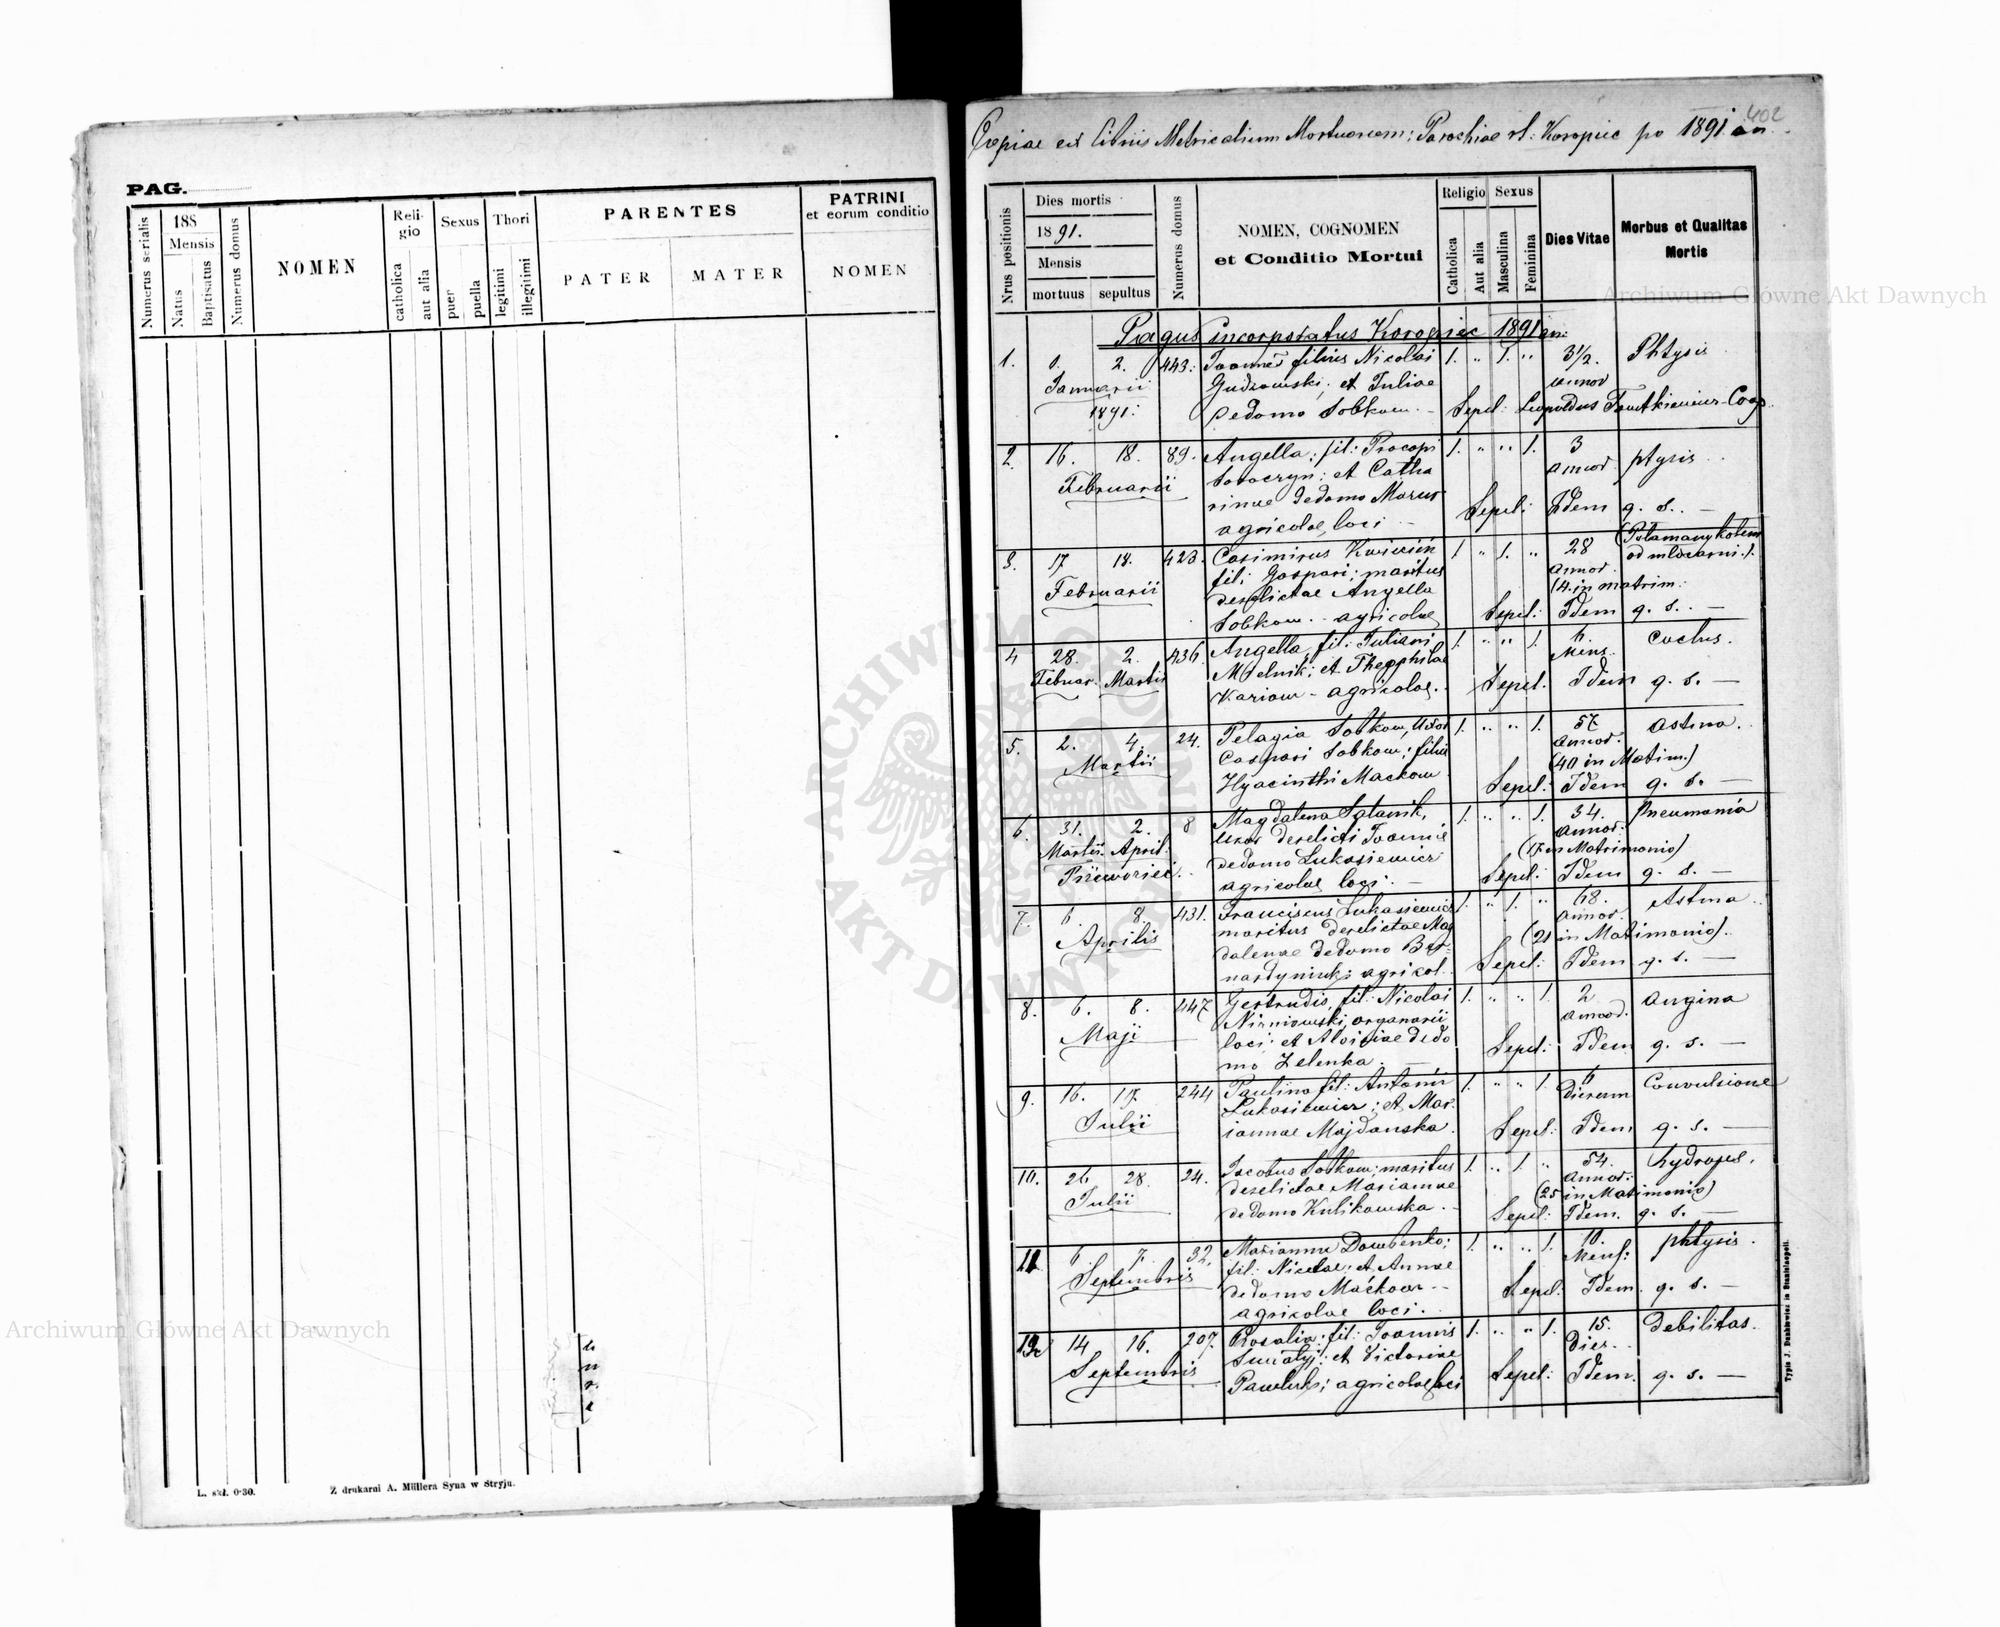 PAG.
Numerus serialis
188
Mensis
Natus
Baptisatus
Numerus domus
NOMEN
Reli-
gio
catholica
aut alia
Sexus
puer
puella
Thori
legitimi
illegitimi
PARENTES
PATER
MATER
PATRINI
et eorum conditio
NOMEN
L. skł. 0·30.
Z drukarni A. Müllera Syna w Stryju.
402
Copiae ex libris Metricalium Mortuorum: Parochiae rl: Koropiec po 1891 an.
Nrus positionis
Dies mortis
1891.
Mensis
mortuus
sepultus
Numerus domus
NOMEN, COGNOMEN
et Conditio Mortui
Religio
Catholica
Aut alia
Sexus
Masculina
Feminina
Dies Vitae
Morbus et Qualitas
Mortis
Pagus incorporatus Koropiec 1891 an:
1. 1. 2. 443. Joannes filius Nicolai 1. „ 1. „ 3½. Phtysis
Januarii Gudzowski; et Juliae annor
1891: dedomo Sobkow. – Sepel: Leopoldus Coop.
2. 16. 18. 89. Angella; fil: Procopi 1. „ „ 1. 3 ptysis
Februarii et Catha annor.
rinae dedomo Mazur Sepel: Idem q. s. –
agricolae loci
3. 17 18. 423. Casimirus 1. „ 1. „ 28 (Połamany kołem
fil: Gaspari; maritus annor. od młocarni.).
Februarii derelictae Angella (4. in matrim:
Sobkow. – agricolae Sepel: Idem q. s. –
4 28. 2. 436. Angella fil: Juliani 1. „ „ 1. 6. coclus.
Februar. Martii Melnik; et Theophilae Mens.
Kariow – agricolae. Sepel: Idem q. s. –
5. 2. 4. 24. Pelagia Sobkow, Uxor 1. „ „ 1. 57 astma.
Martii Caspari Sobkow; filia annor.
(40 in Matim.)
Hyacinthi Mackow Sepel: Idem q. s. –
6. 31. 2. 8 Magdalena 1. „ „ 1. 34. Pneumonia
Martii. April. uxor derelicti Joannis annor.
dedomo Lukasiewicz (17 in Matrimonio)
agricolae loci. – Sepel: Idem q. s. –
7. 6. 8. 431. Franciscus Lukasiewicz 1. „ 1. „ 68. Astma.
Aprilis maritus derelictae Mag annor.
dalenae dedomo Ber- (21 in Matimonio).
agricol. Sepel: Idem q. s. –
8. 6. 8. 447 Gertrudis, fil: Nicolai 1. „ „ 1. 2 angina
Maji Nizniowski, organarii annor.
loci: et Aloisiae dedo Sepel: Idem q. s. –
mo Zelenka. –
9. 16. 17. 244 Paulina fil: Antonii 1. „ „ 1. 6 Convulsione
Julii Lukasiewicz; et Mar- Dierum
iannae Majdanska. Sepel: Idem q. s. –
10. 26 28. 24. Jacobus Sobkow; maritus 1. „ 1. „ 54. hydrops.
Julii derelictae Mariannae annor.
dedomo Kulikowska. – (25 in Matimonio)
Sepel: Idem. q. s. –
11. 6. 7. 32. Marianna Dowbenko; 1. „ „ 1. 10. phtysis.
Septembris fil: Nicolae; et Annae Mens:
dedomo Maćkow – Sepel: Idem. q. s. –
agricolae loci.
12. 14 16. 207. Rosalia; fil: Joannis 1. „ „ 1. 15. Debilitas.
Septembris et Victoriae Dier.
agricolae loci Sepel: Idem. q. s. –
Typis J. Dankiewicz in Stanislaopoli.
Archiwum Główne Akt Dawnych
Archiwum Główne Akt Dawnych
ARCHIWUM GŁÓWNE AKT DAWNYCH